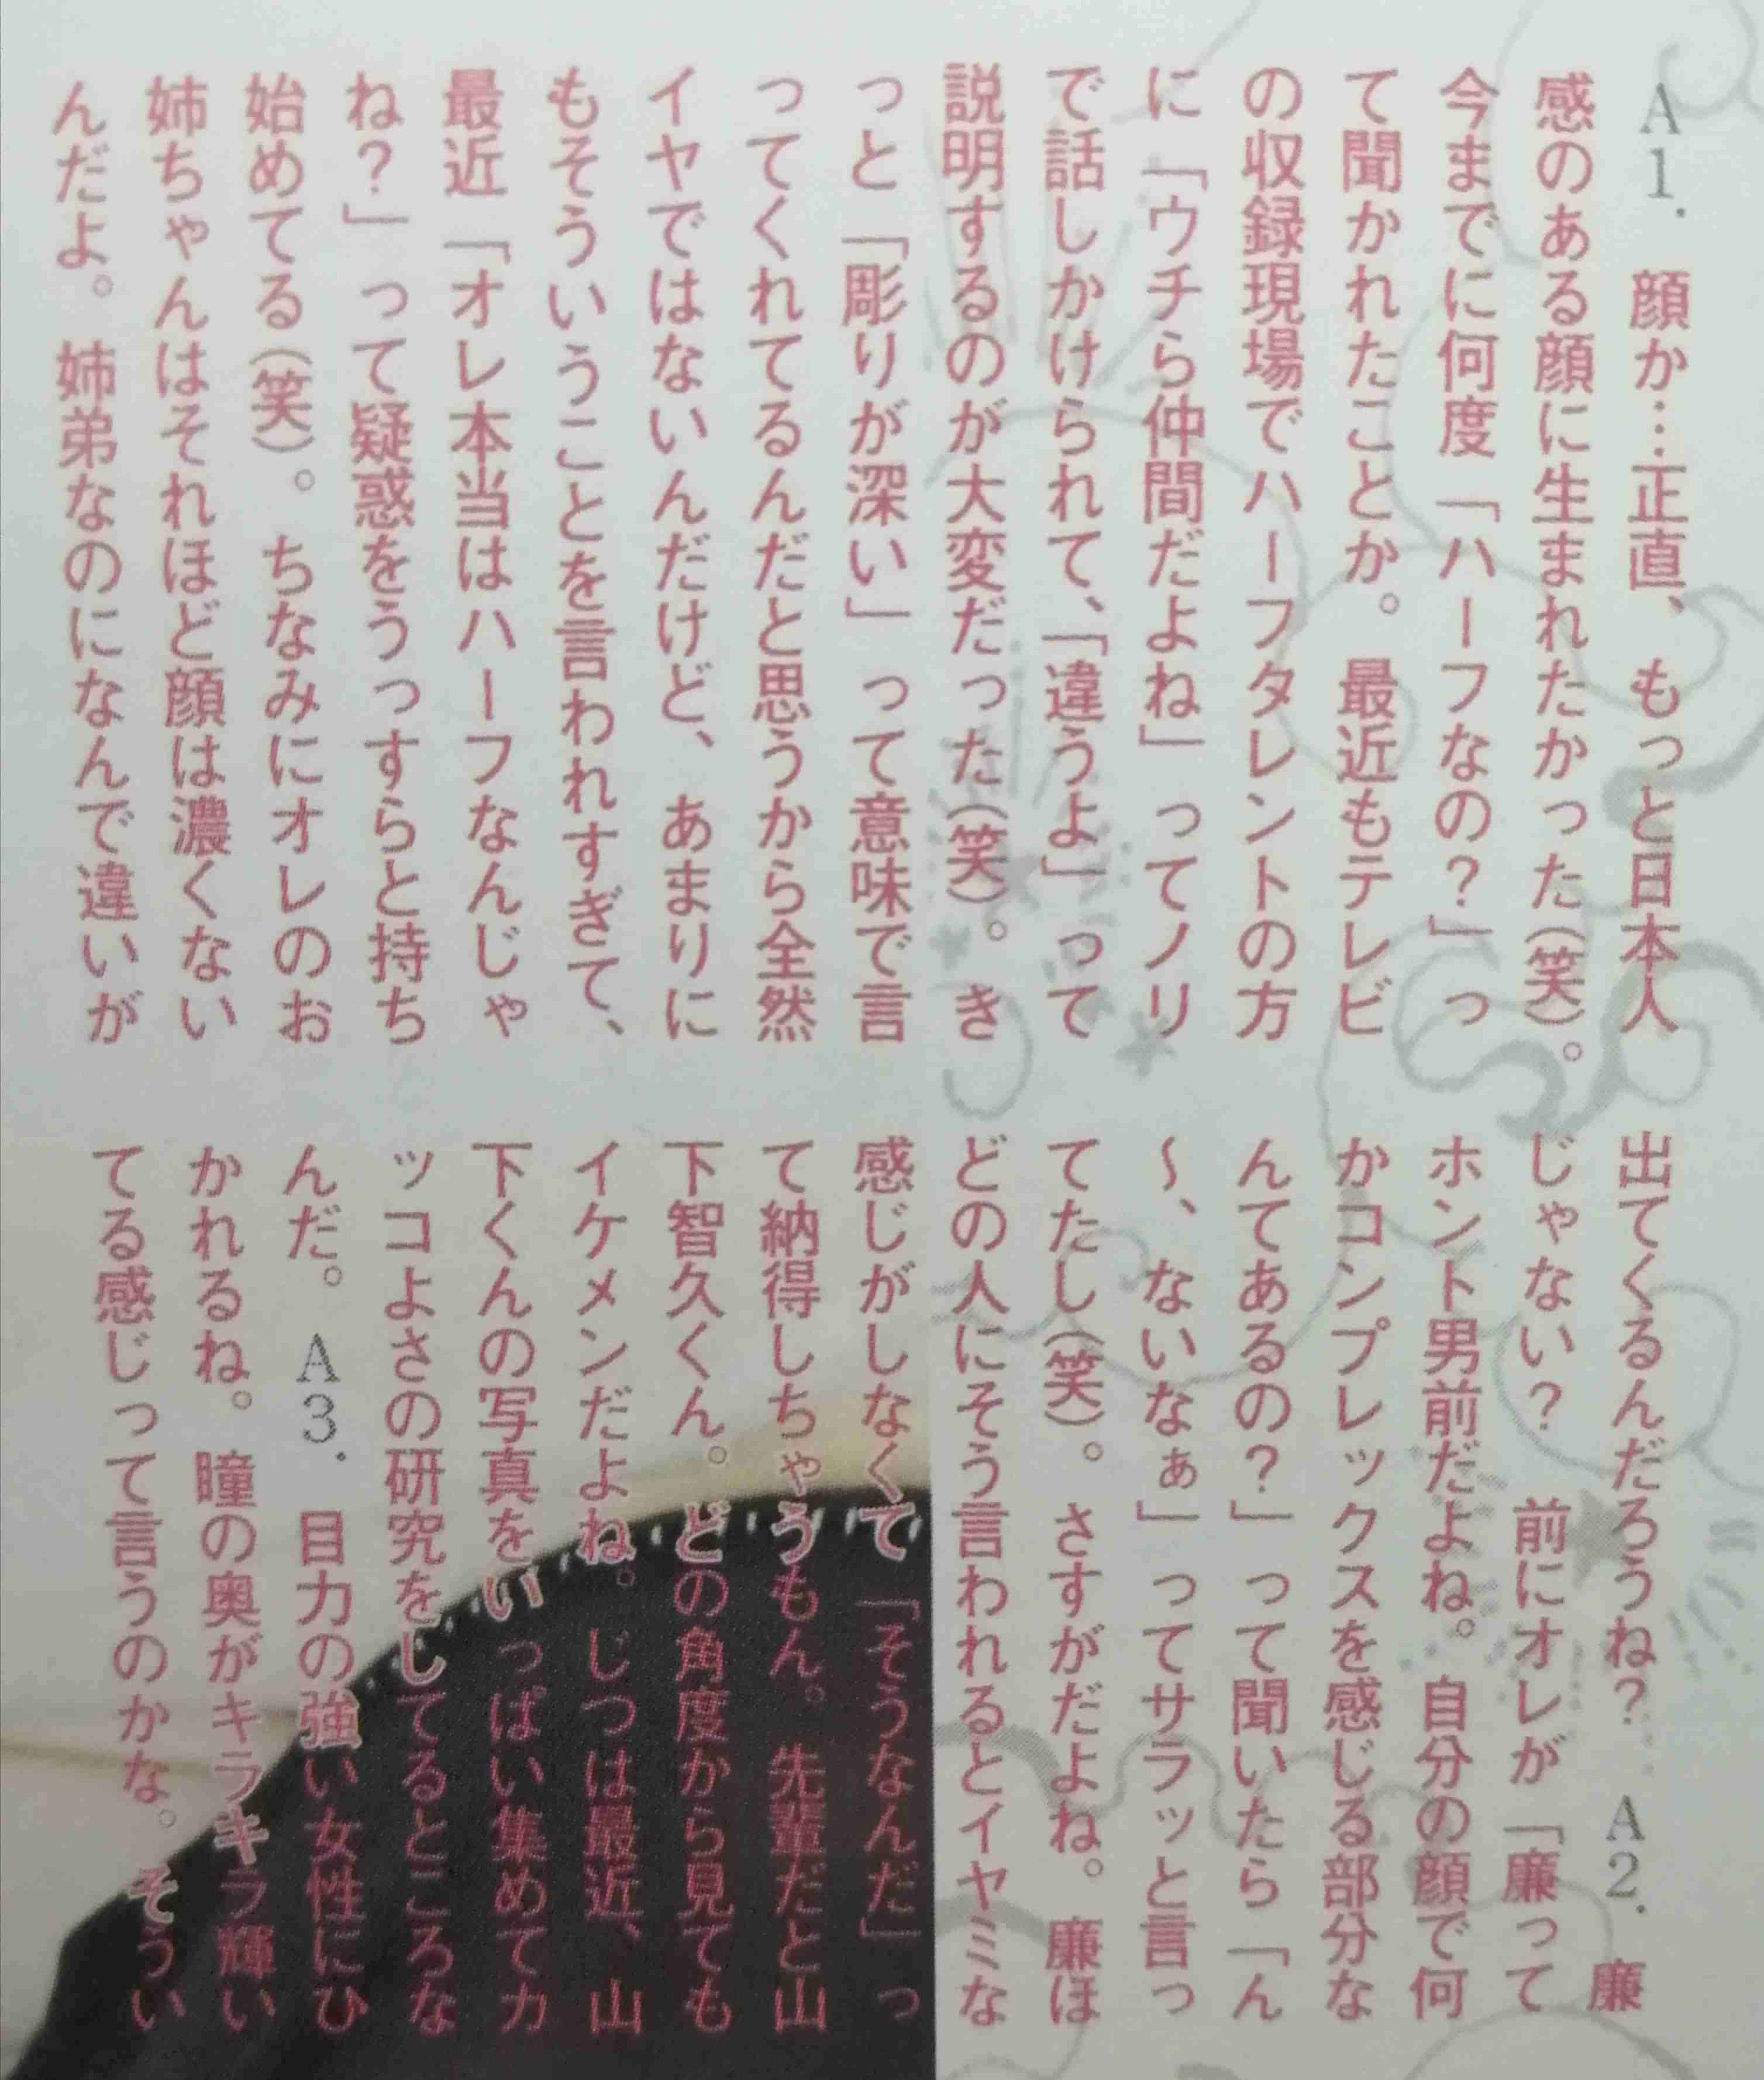 A1. 顔か…正直、もっと日本人
感のある顔に生まれたかった(笑)。
今までに何度「ハーフなの?」っ
て聞かれたことか。最近もテレビ
の収録現場でハーフタレントの方
に「ウチら仲間だよね」ってノリ
で話しかけられて、「違うよ」って
説明するのが大変だった(笑)。き
っと「彫りが深い」って意味で言
ってくれてるんだと思うから全然
イヤではないんだけど、あまりに
もそういうことを言われすぎて、
最近「オレ本当はハーフなんじゃ
ね?」って疑惑をうっすらと持ち
始めてる(笑)。ちなみにオレのお
姉ちゃんはそれほど顔は濃くない
んだよ。姉弟なのになんで違いが
出てくるんだろうね? A2. 廉
じゃない? 前にオレが「廉って
ホント男前だよね。自分の顔で何
かコンプレックスを感じる部分な
んてあるの?」って聞いたら「ん
〜、ないなぁ」ってサラッと言っ
てたし(笑)。さすがだよね。廉ほ
どの人にそう言われるとイヤミな
感じがしなくて「そうなんだ」っ
て納得しちゃうもん。先輩だと山
下智久くん。どの角度から見ても
イケメンだよね。じつは最近、山
下くんの写真をいっぱい集めてカ
ッコよさの研究をしてるところな
んだ。 A3. 目力の強い女性にひ
かれるね。瞳の奥がキラキラ輝い
てる感じって言うのかな。そうい